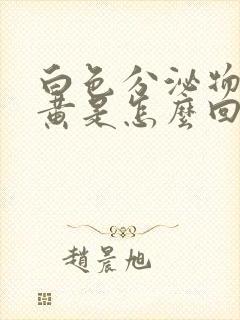 白色分泌物
黄是怎麼回
趙晨旭